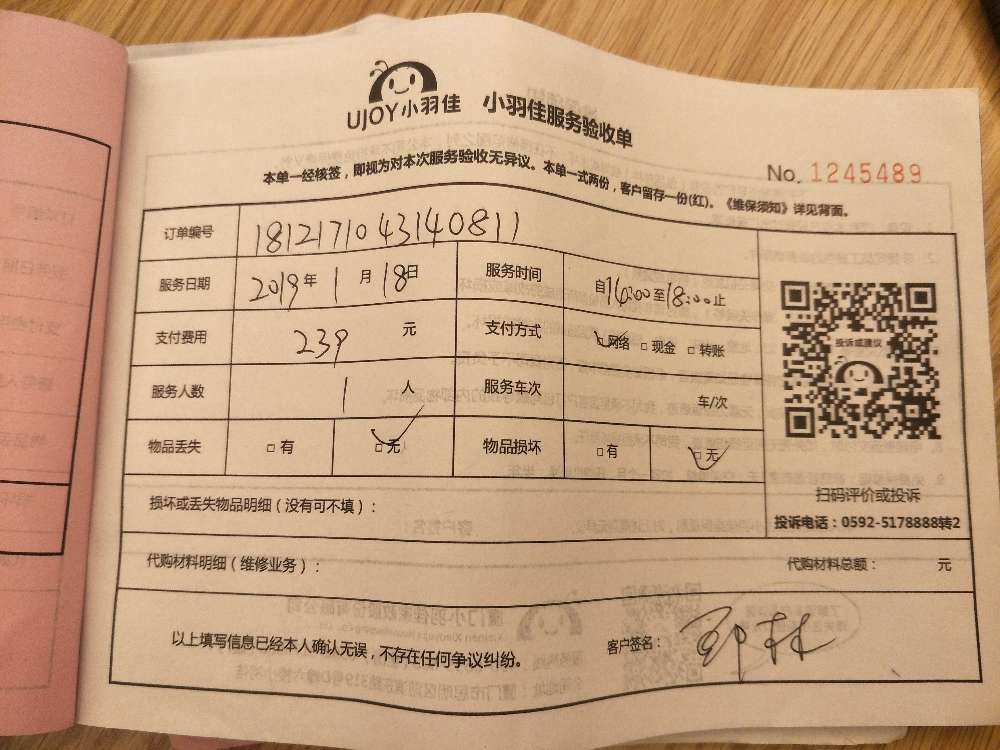 UJOY小羽佳 小羽佳服务验收单
本单一经核签，即视为对本次服务验收无异议。本单一式两份，客户留存一份(红)。《维保须知》详见背面。
No. 1245489
订单编号 1812171043140811
服务日期 2019年1月18日 服务时间 自14:00至18:00止
支付费用 239 元 支付方式 □网络 □现金 □转账
服务人数 1 人 服务车次 车/次
物品丢失 □有 □无 物品损坏 □有 □无
投诉或建议
扫码评价或投诉
投诉电话：0592-5178888转2
损坏或丢失物品明细（没有可不填）：
代购材料明细（维修业务）： 代购材料总额： 元
以上填写信息已经本人确认无误，不存在任何争议纠纷。 客户签名：